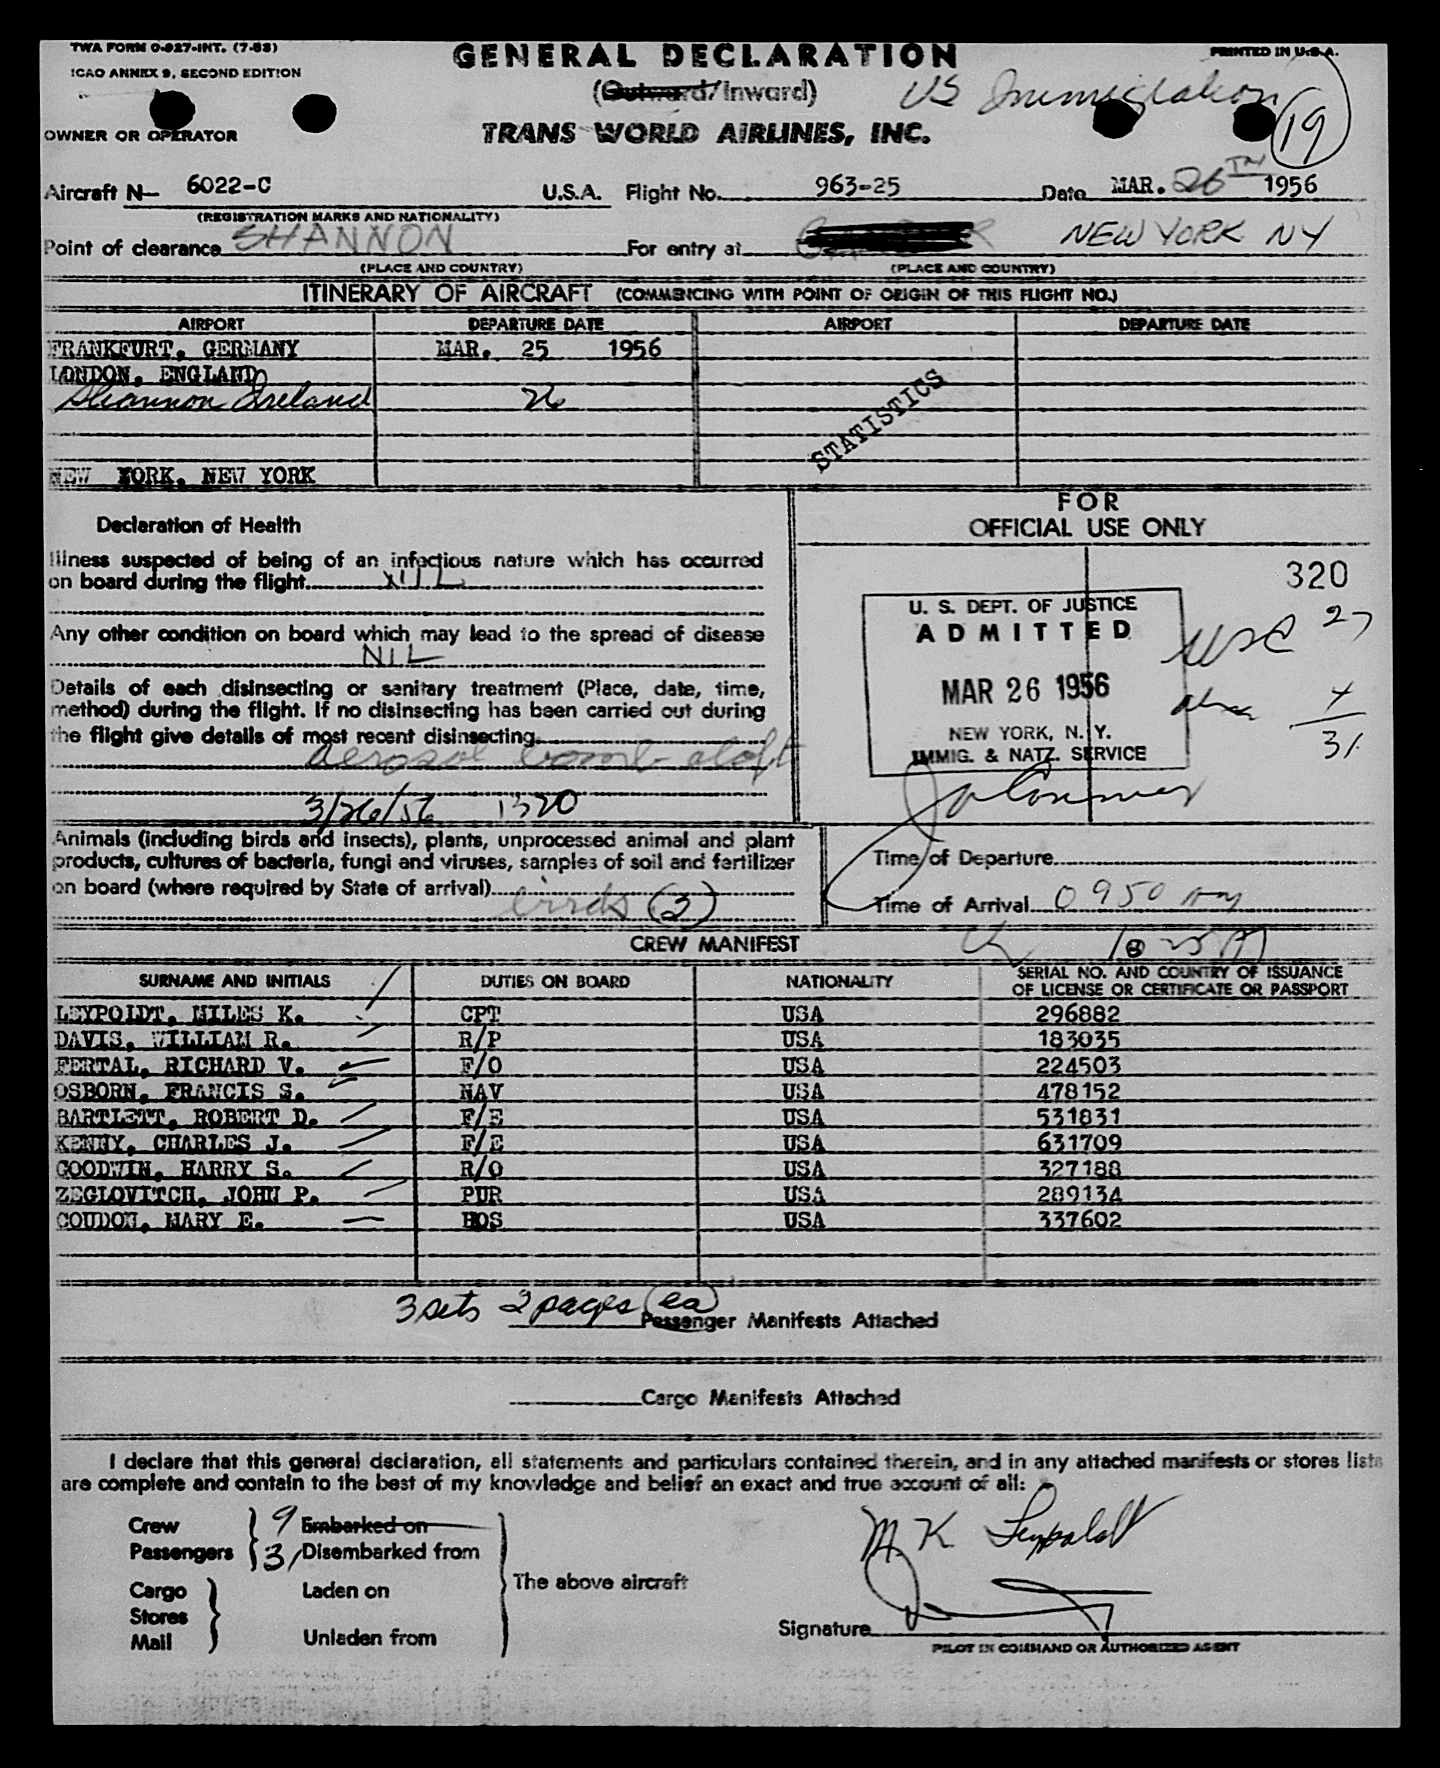 TWA FORM O-927-INT. (7-53)
GENERAL DECLARATION
PRINTED IN U.S.A.
ICAO ANNEX 9, SECOND EDITION
(Outward/Inward)
US Immigration
19
OWNER OR OPERATOR
TRANS WORLD AIRLINES, INC.
Aircraft N— 6022-C U.S.A. Flight No. 963-25 Date MAR. 26TH 1956
(REGISTRATION MARKS AND NATIONALITY)
Point of clearance SHANNON For entry at NEW YORK NY
(PLACE AND COUNTRY) (PLACE AND COUNTRY)
ITINERARY OF AIRCRAFT (COMMENCING WITH POINT OF ORIGIN OF THIS FLIGHT NO.)
AIRPORT DEPARTURE DATE AIRPORT DEPARTURE DATE
FRANKFURT, GERMANY MAR. 25 1956
LONDON, ENGLAND
Shannon Ireland 26
STATISTICS
NEW YORK, NEW YORK
FOR
OFFICIAL USE ONLY
Declaration of Health
Illness suspected of being of an infectious nature which has occurred
on board during the flight NIL
Any other condition on board which may lead to the spread of disease
NIL
Details of each disinsecting or sanitary treatment (Place, date, time,
method) during the flight. If no disinsecting has been carried out during
the flight give details of most recent disinsecting
aerosol bomb aloft
3/26/56 1320
320
U. S. DEPT. OF JUSTICE
ADMITTED
MAR 26 1956
NEW YORK, N. Y.
IMMIG. & NATZ. SERVICE
USC 27
alien 4
31
Animals (including birds and insects), plants, unprocessed animal and plant
products, cultures of bacteria, fungi and viruses, samples of soil and fertilizer
on board (where required by State of arrival)
birds (2)
Time of Departure
Time of Arrival 0950 am
CREW MANIFEST
SURNAME AND INITIALS DUTIES ON BOARD NATIONALITY SERIAL NO. AND COUNTRY OF ISSUANCE
OF LICENSE OR CERTIFICATE OR PASSPORT
LEYPOLDT, MILES K. CPT USA 296882
DAVIS, WILLIAM R. R/P USA 183035
FERTAL, RICHARD V. F/O USA 224503
OSBORN, FRANCIS S. NAV USA 478152
BARTLETT, ROBERT D. F/E USA 531831
KENNY, CHARLES J. F/E USA 631709
GOODWIN, HARRY S. R/O USA 327188
ZEGLOVITCH, JOHN P. PUR USA 289134
COUDON, MARY E. HOS USA 337602
3 sets 2 pages (ea)
Passenger Manifests Attached
Cargo Manifests Attached
I declare that this general declaration, all statements and particulars contained therein, and in any attached manifests or stores lists
are complete and contain to the best of my knowledge and belief an exact and true account of all:
Crew 9 Embarked on
Passengers 31 Disembarked from
Cargo Laden on
The above aircraft
Stores
Mail Unladen from
M K Leypoldt
Signature
PILOT IN COMMAND OR AUTHORIZED AGENT